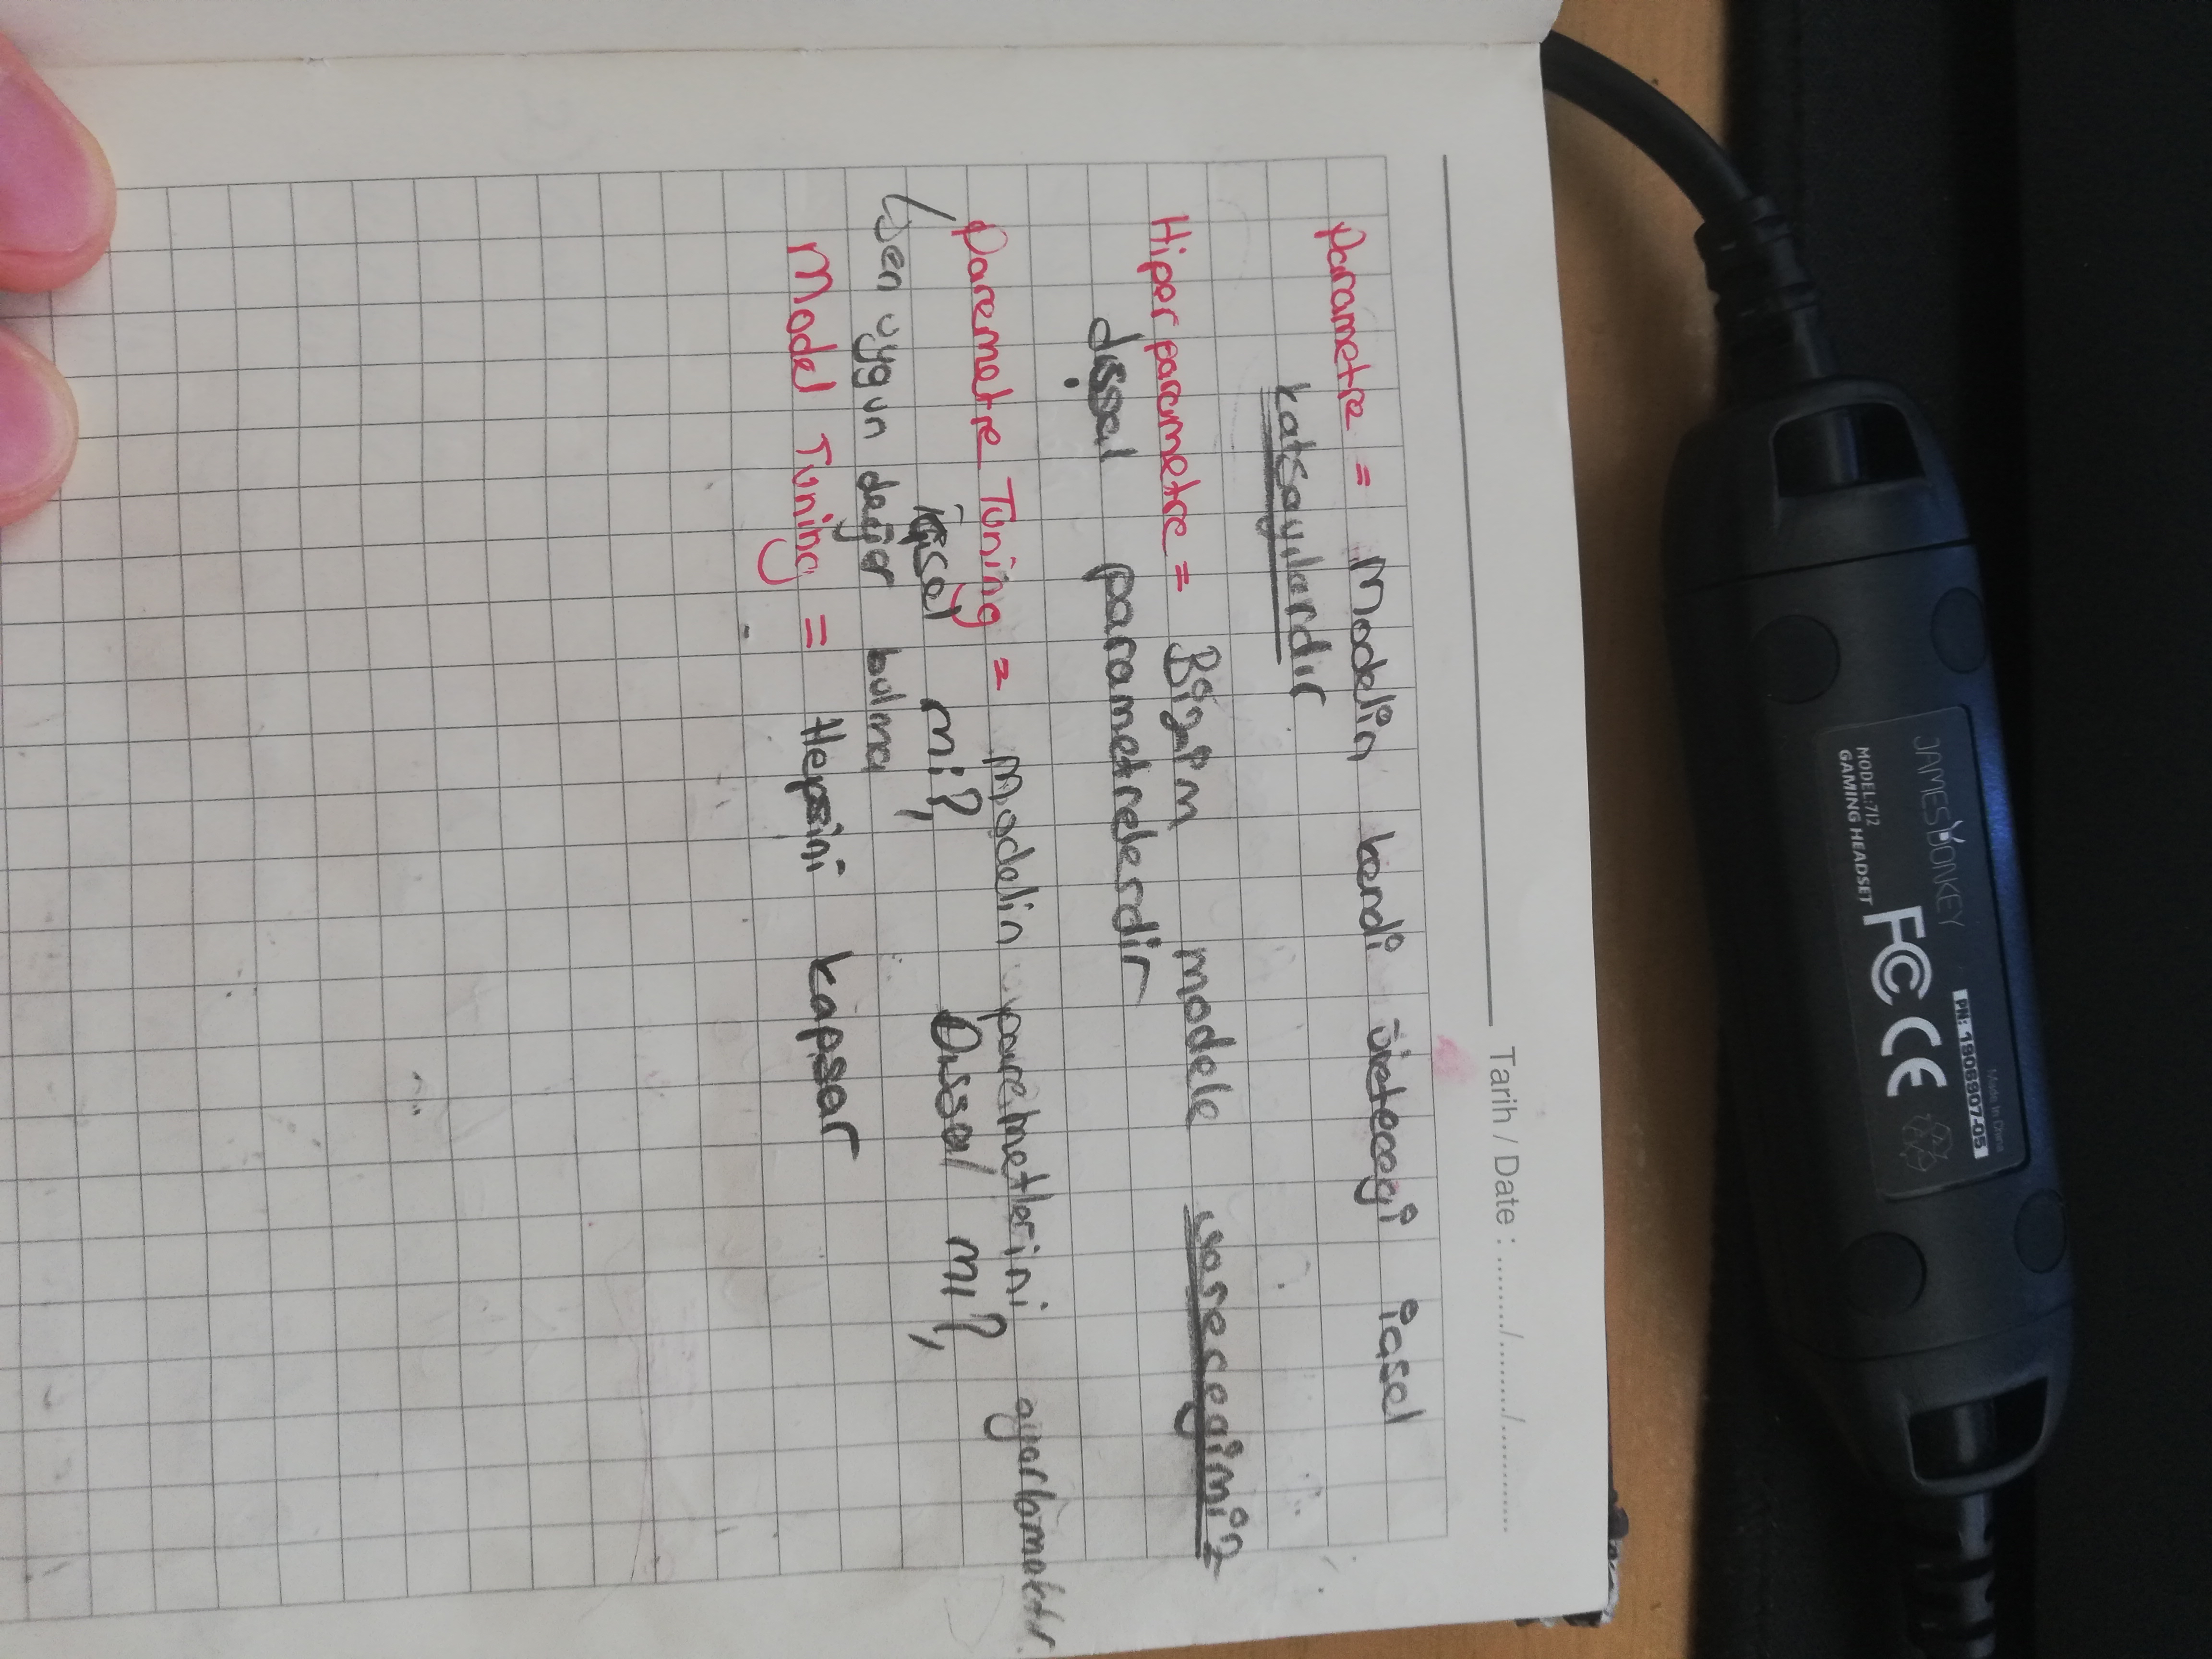 Made In China
PN: 1906907-05
JAMES DONKEY
FC CE
MODEL:712
GAMING HEADSET
Tarih / Date : ......../......../............
Parametre = Modelin kendi üretecegi içsel
katsayılardır
Hiper parametre = Bizim modele verecegimiz
dışsal parametrelerdir
Paremetre Tuning = Modelin paremetlerini ayarlamaktır.
içsel mi?, Dıssal mı?,
en uygun değer bulma
Model Tuning = Hepsini kapsar